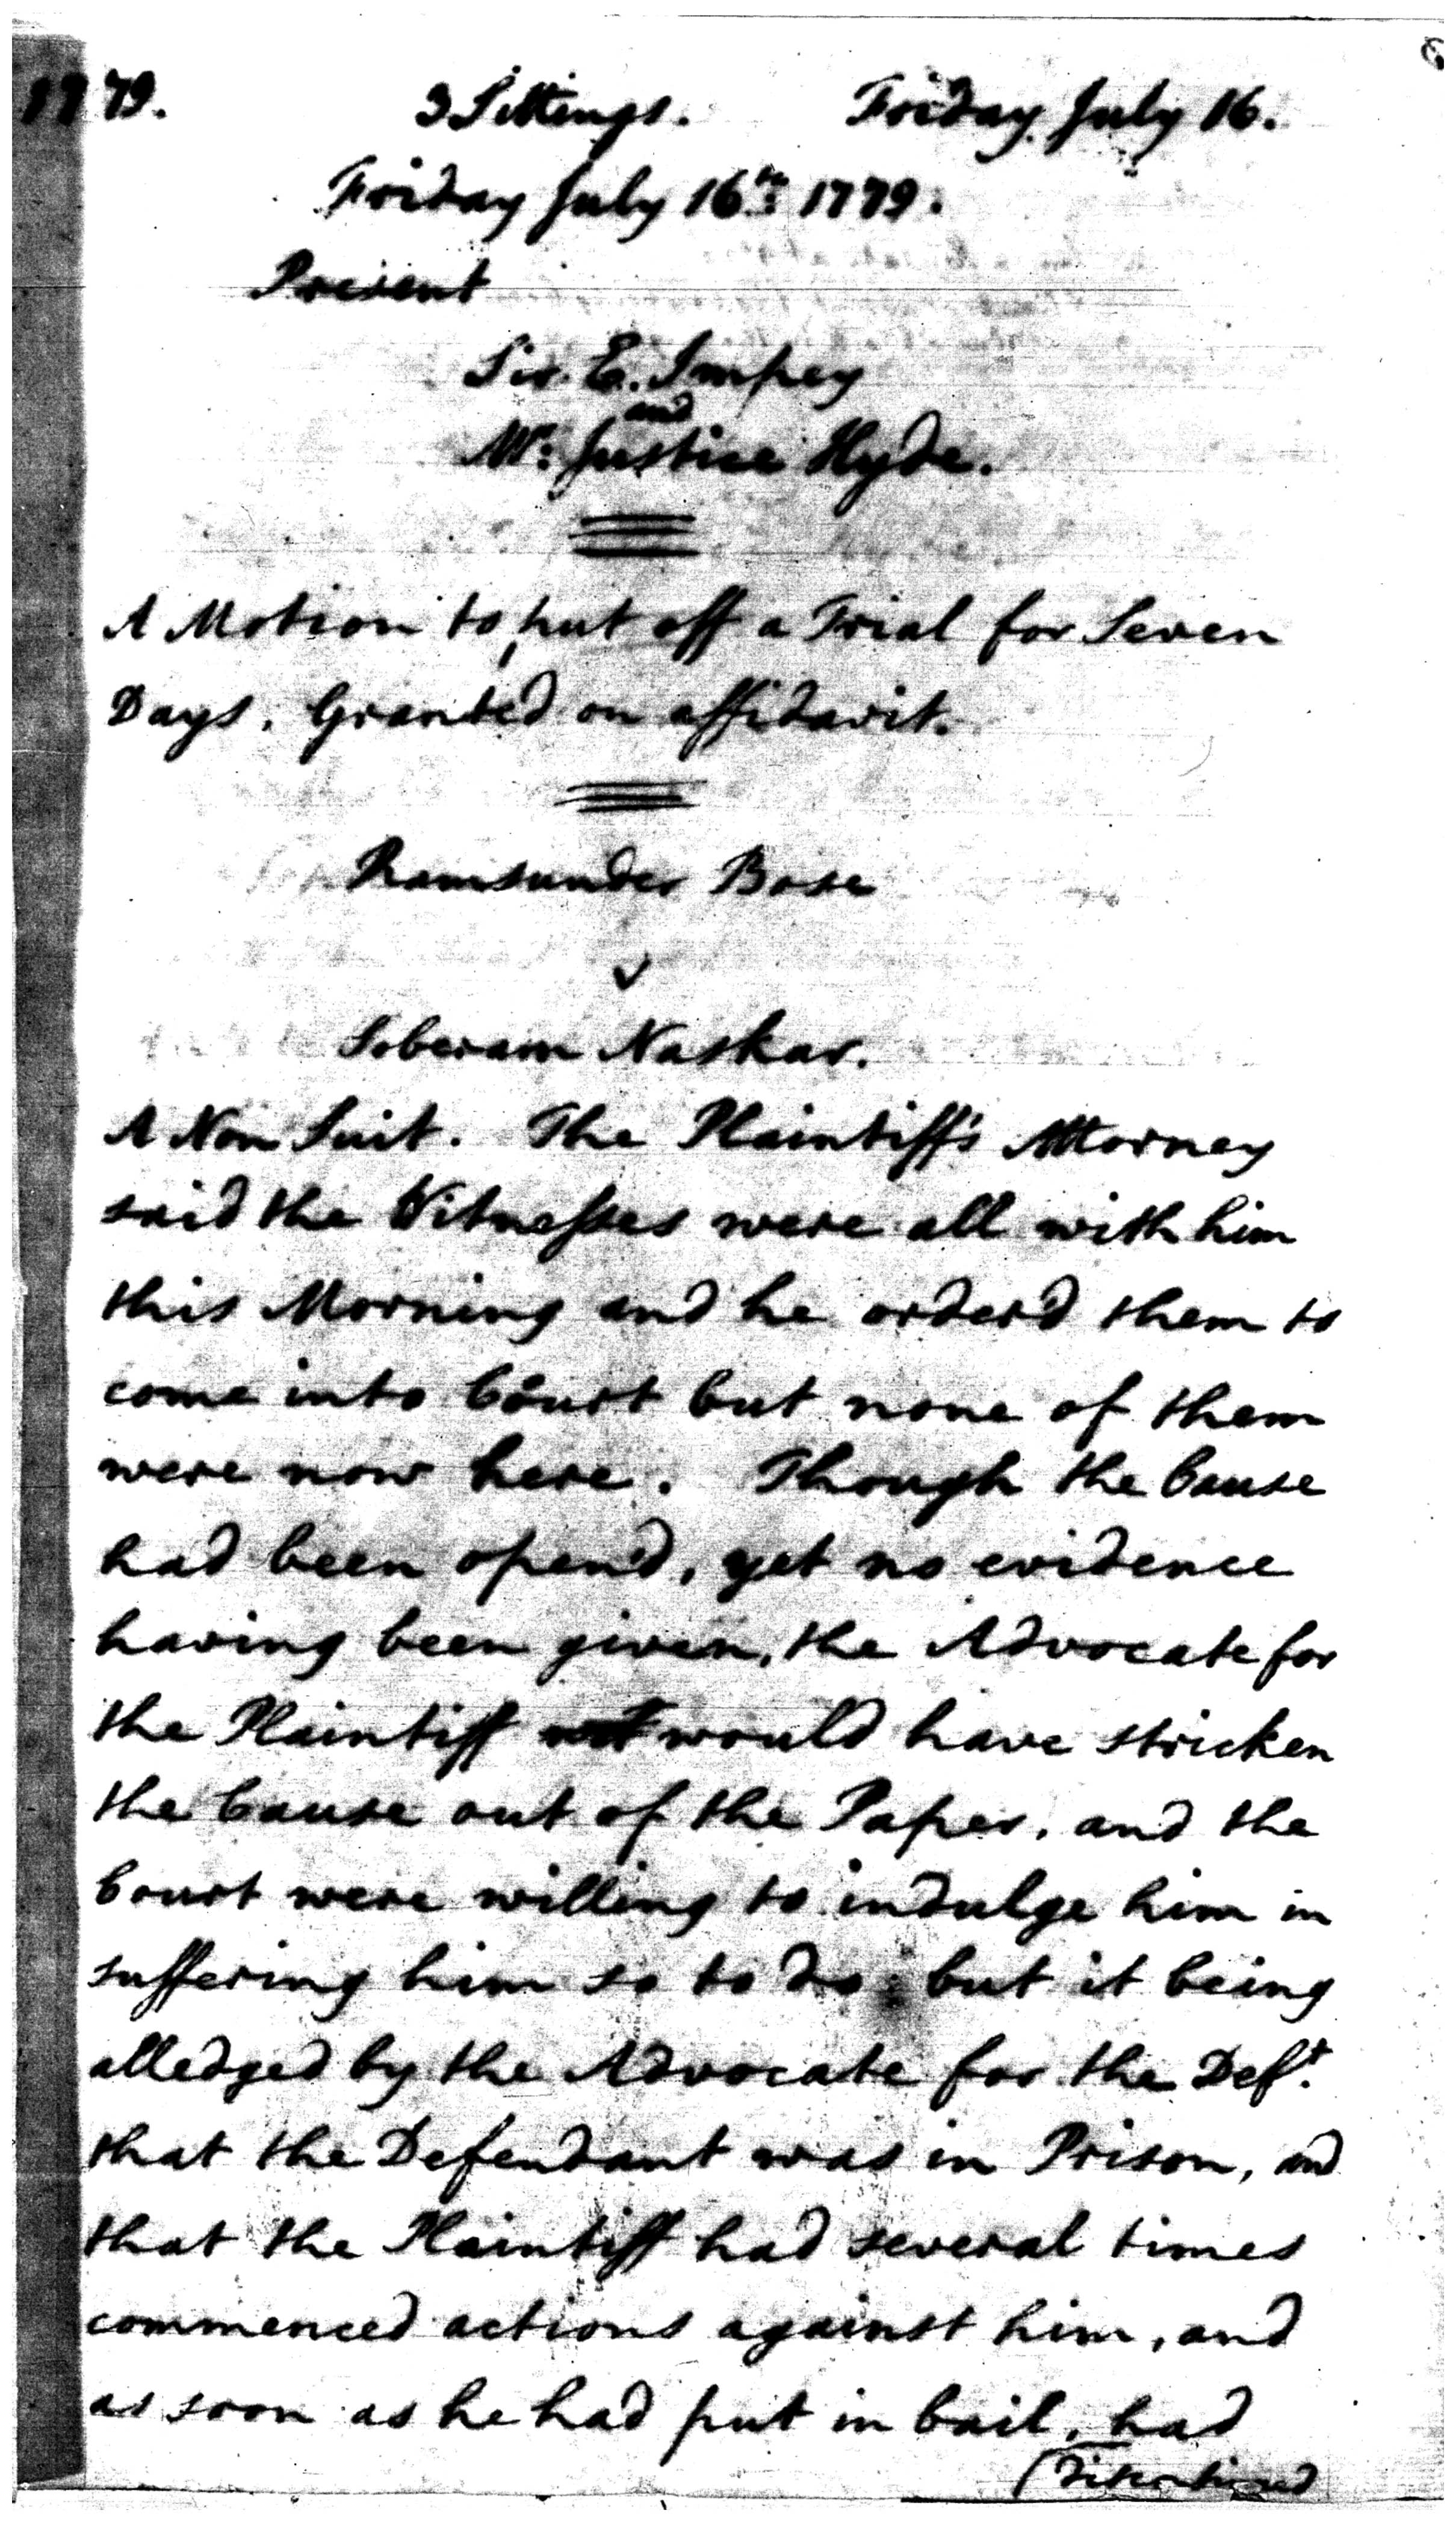 1779. 3 Sittings. Friday July 16.
Friday July 16th 1779.
Present
Sir E. Impey
and
Mr: Justice Hyde.
A Motion to put off a Trial for Seven
Days, Granted on affidavit.
Ramsunder Bose
v
Soberam Naskar.
A Non Suit. The Plaintiff's Attorney
said the Witnesses were all with him
this Morning and he orderd them to
come into Court but none of them
were now here. Though the Cause
had been open'd, yet no evidence
having been given, the Advocate for
the Plaintiff would have stricken
the Cause out of the Paper, and the
Court were willing to indulge him in
suffering him so to do: but it being
alledged by the Advocate for the Deft.
that the Defendant was in Prison, and
that the Plaintiff had several times
commenced actions against him, and
as soon as he had put in bail, had
(discontinued